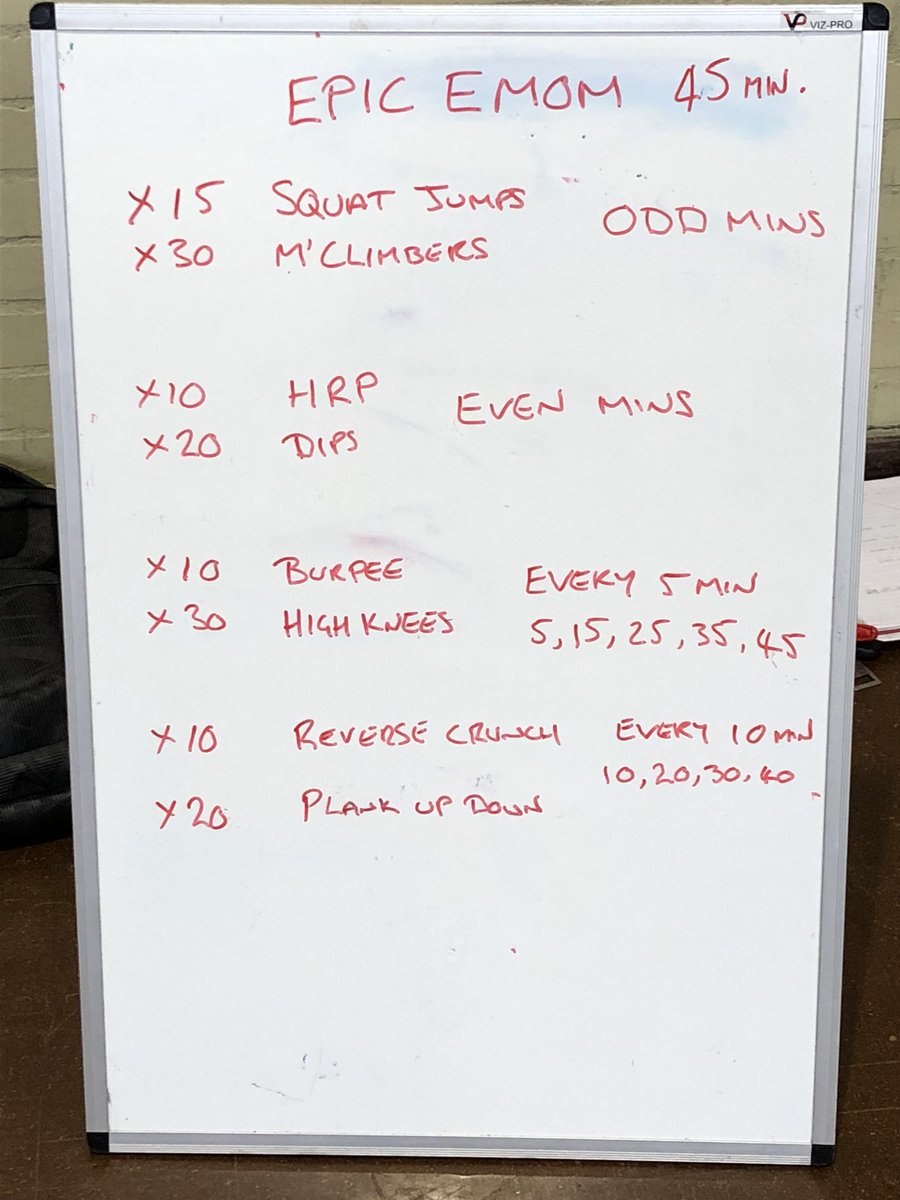 VP VIZ-PRO
EPIC EMOM 45 MIN.
X 15 SQUAT JUMPS ODD MINS
X 30 M'CLIMBERS
X10 HRP EVEN MINS
X20 DIPS
X 10 BURPEE EVERY 5 MIN
X 30 HIGH KNEES 5, 15, 25, 35, 45
X 10 REVERSE CRUNCH EVERY 10 MIN
10, 20, 30, 40
X 20 PLANK UP DOWN